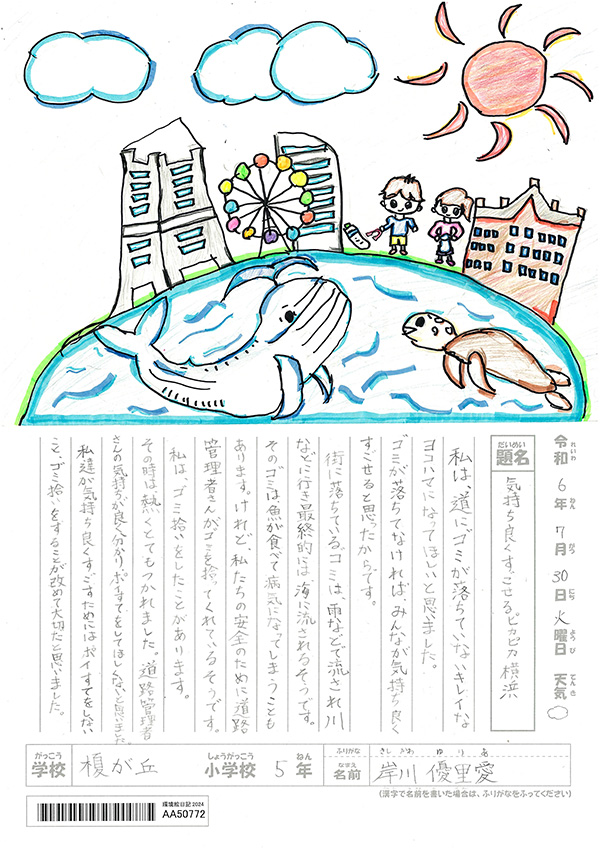 令和6年7月30日火曜日 天気
れいわ ねん がつ にち ようび てんき
だいめい
題名 気持ち良くすごせるピカピカ横浜
私は、道にゴミが落ちていないキレイな
ヨコハマになってほしいと思いました。
ゴミが落ちてなければ、みんなが気持ち良く
すごせると思ったからです。
街に落ちているゴミは、雨などで流され川
などに行き最終的には海に流されるそうです。
そのゴミは魚が食べて病気になってしまうことも
あります。けれど、私たちの安全のために道路
管理者さんがゴミを拾ってくれているそうです。
私は、ゴミ拾いをしたことがあります。
その時は熱くとてもつかれました。道路管理者
さんの気持ちが良く分かり、ポイすてをしてほしくないと思いました。
私達が気持ち良くすごすためにはポイすてをしない
こと、ゴミ拾いをすることが改めて大切だと思いました。
がっこう しょうがっこう ねん ふりがな きしかわ ゆりあ
学校 榎が丘 小学校 5年 なまえ 名前 岸川 優里愛
(漢字で名前を書いた場合は、ふりがなをふってください)
環境絵日記2024
AA50772